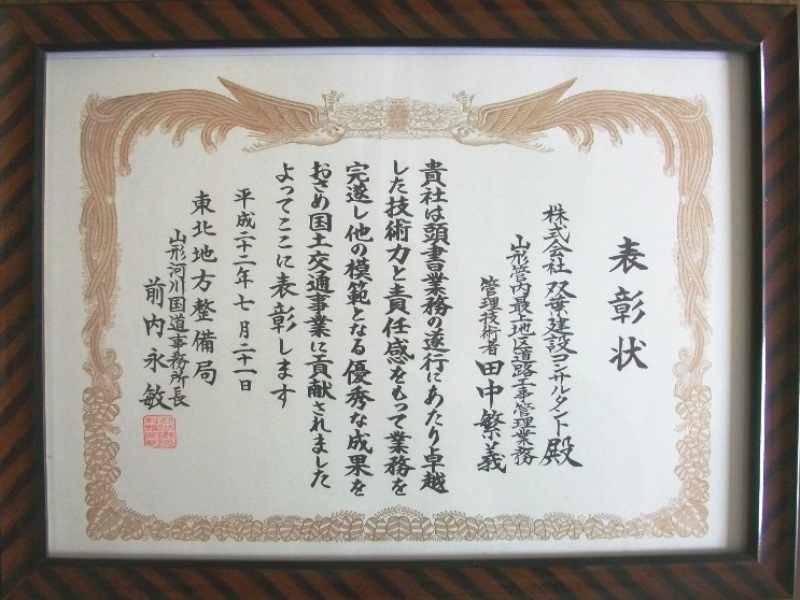 表彰状
株式会社 双葉建設コンサルタント 殿
山形管内最上地区道路工事管理業務
管理技術者 田中繁義
貴社は頭書業務の遂行にあたり卓越
した技術力と責任感をもって業務を
完遂し他の模範となる優秀な成果を
おさめ国土交通事業に貢献されました
よってここに表彰します
平成二十二年七月二十一日
東北地方整備局
山形河川国道事務所長
前内永敏